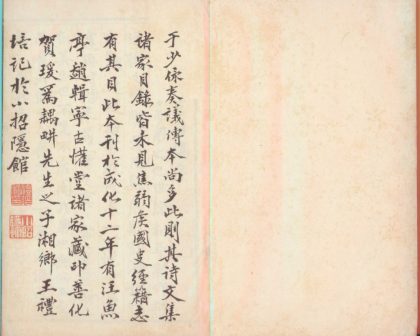 于少保奏議傳本尚多此則其詩文集
諸家目錄皆未見焦弱侯國史經籍志
有其目此本刊於成化十二年有汪魚
亭趙輯寧古懽堂諸家藏印善化
賀瑗爲耦畊先生之子湘鄉王禮
培記於小招隱館